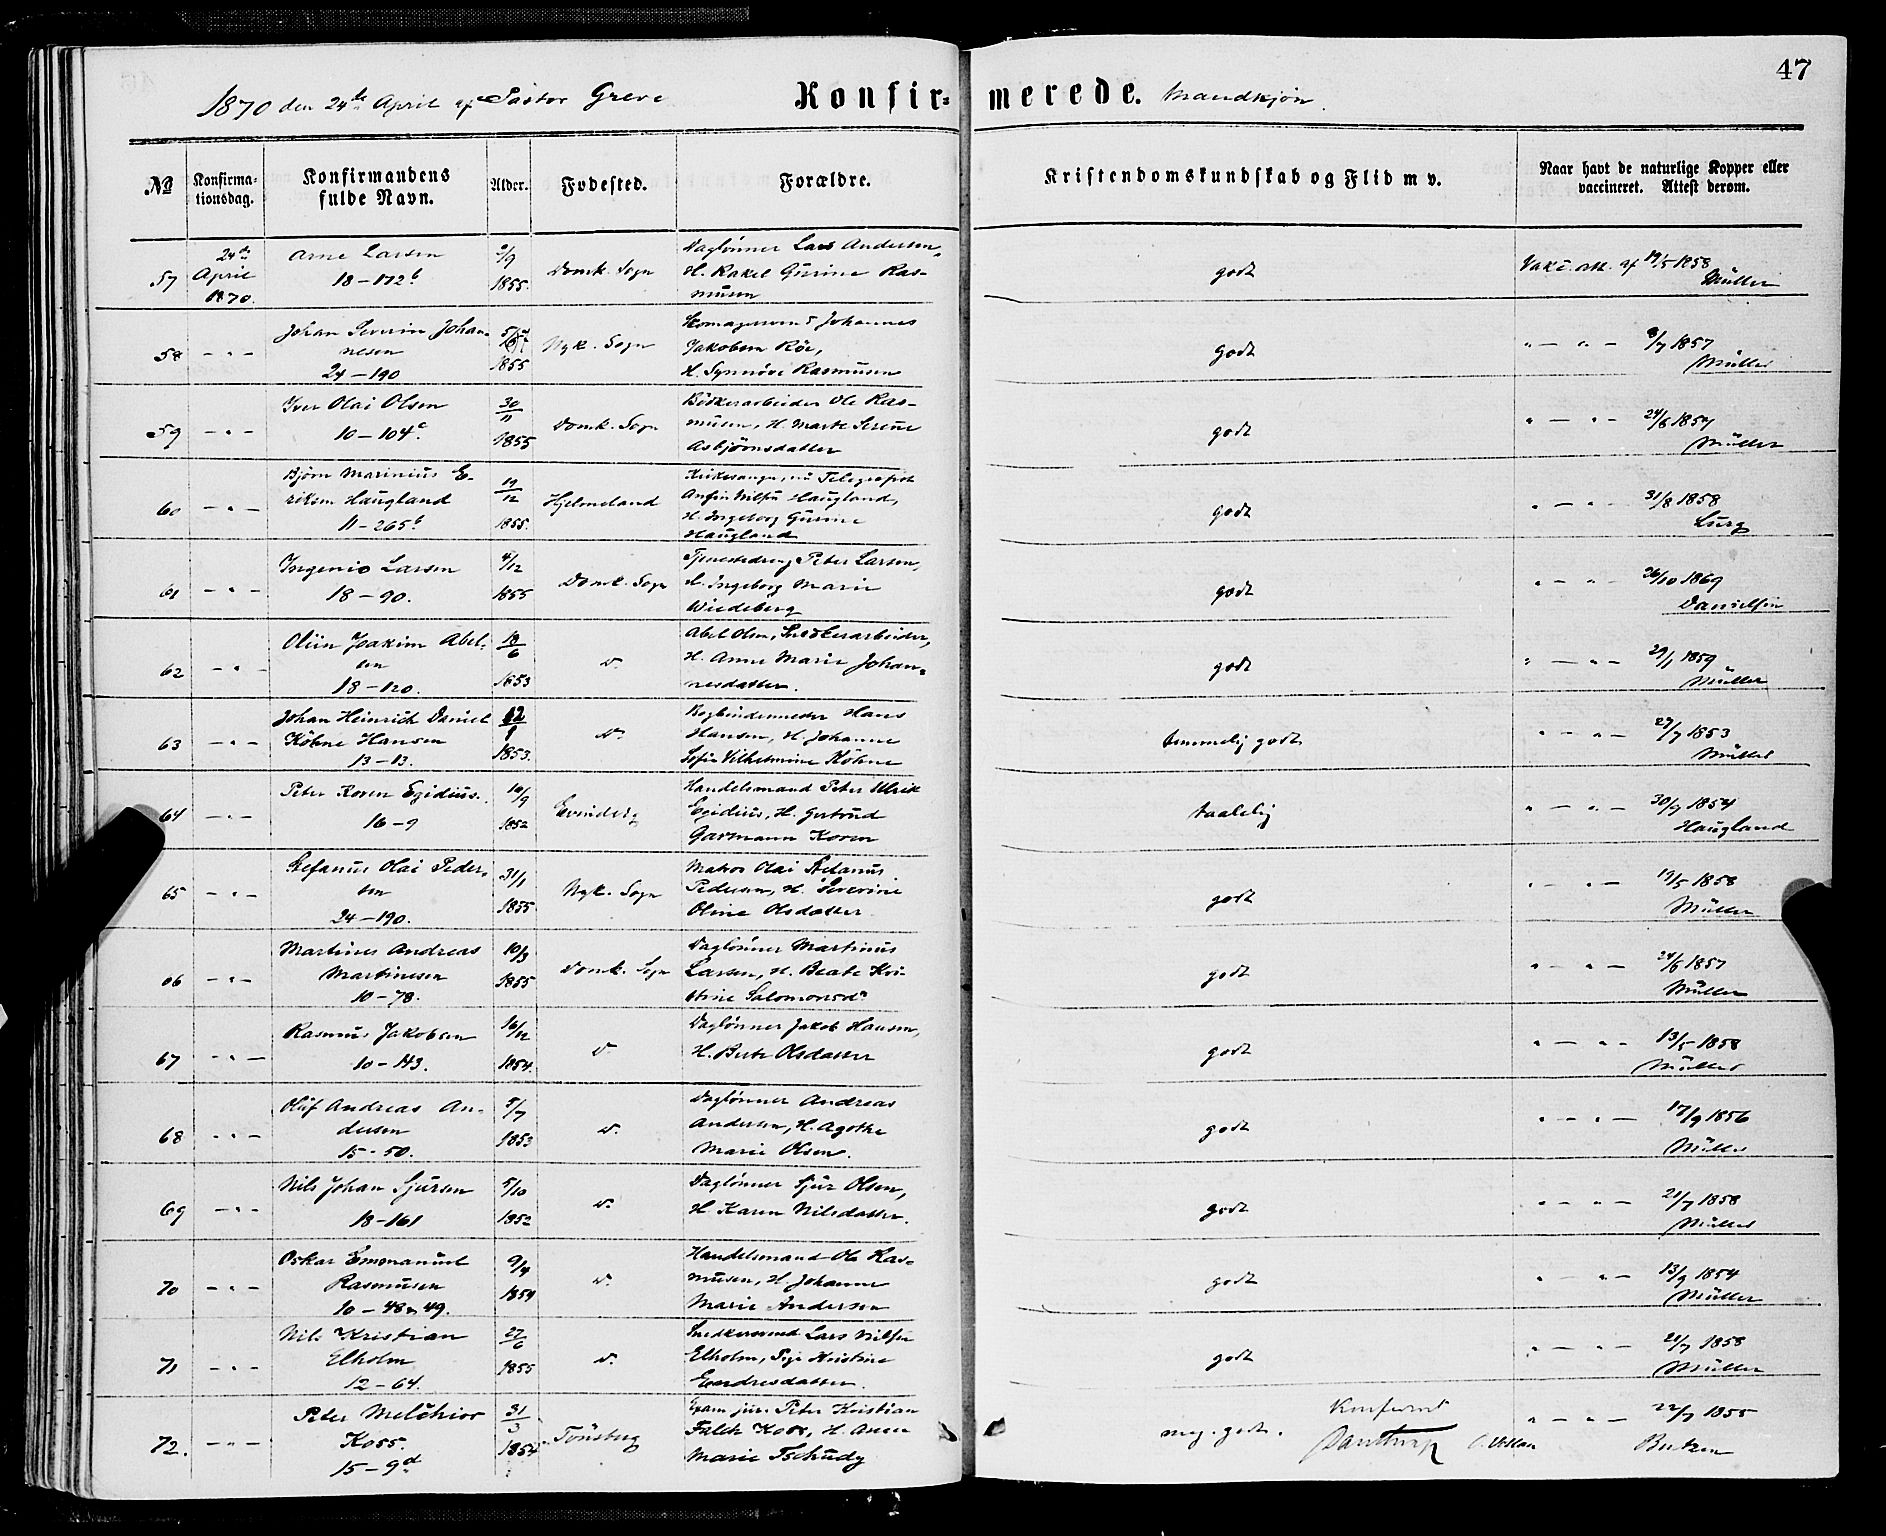 47
1870 den 24de April af Pastor Greve Konfir= merede. Mandkjøn.
No Konfirma-tionsdag. Konfirmandens fulde Navn. Alder. Fødested. Forældre. Kristendomskundskab og Flid m v. Naar havt de naturlige Kopper eller vaccineret. Attest derom.
57 24de April 1870. Arne Larsen 18-172b /9 1855. Domk. Sogn Daglønner Lars Andersen, H. Rakel Gurine Rasmusen godt Vakc. att. af 19/5 1858 Müller
58 - " - Johan Severin Johannesen 24-190 1855 Nyk. Sogn Skomagersvend Johannes Jakobsen Röe, H. Synnöve Rasmusen godt " - " - 8/7 1857 Müller
59 - " - Iver Olai Olsen 10-104c 30/11 1855 Domk. Sogn Bödkerarbeider Ole Rasmusen, H. Marte Serine Asbjörnsdatter godt " - " - 24/6 1857 Müller
60 - " - Björn Marinius Eriksen Haugland 11-265b 19/12 1855. Hjelmeland Kirkesanger, nu Telegrafist Haugland, H. Ingeborg Gurine Haugland godt " - " - 31/8 1858 Lurg
61 - " - Ingenio Larsen 18-90. 4/12 1855 Domk. Sogn Tjenestedreng Peter Larsen, H. Ingeborg Marie Wiedeberg godt " - " - 26/10 1869 Danielsen
62 - " - Oliin Joakim Abelsen 18-120. 18/6 1853 D. Abel Olsen, Snedkerarbeider, H. Anne Marie Johannesdatter. godt " - " - 29/1 1859 Müller
63 - " - Johan Heinrich Daniel Köhne Hansen 13-13. 12/1 1853. D. Bogbindermester Hans Hansen, H. Johanne Sofie Vilhelmine Köhne temmelig godt " - " - 27/7 1853 Müller
64 - " - Peter Koren Egidius. 16-9 10/9 1852 Evindvig Handelsmand Peter Ulrik Egidius, H. Gertrud Garmann Koren taalelig " - " - 30/9 1854 Haugland
65 - " - Stefanus Olai Pedersen 24-190. 31/1 1855 Nyk. Sogn Matros Olai Stefanus Pedersen, H. Severine Oline Olsdatter godt " - " - 19/5 1858 Müller
66 - " - Martines Andreas Martinesen 10-78. 10/3 1855 Domk. Sogn Daglönner Martinus Larsen, H. Beate Kristine Salomonsdr godt " - " - 24/6 1857 Müller
67 - " - Rasmus Jakobsen 10-143. 16/12 1854. D. Daglönner Jakob Hansen, H. Berte Olsdatter godt " - " - 13/5 1858 Müller
68 - " - Oluf Andreas Andersen 15-50. 5/7 1853 D. Daglönner Andreas Andersen, H. Agothe Marie Olsen. godt " - " - 17/9 1856 Müller
69 - " - Nils Johan Sjursen 18-161 5/10 1852 D. Daglönner Sjur Olsen, H. Karen Nilsdatter. godt " - " - 21/7 1858 Müller
70 - " - Oskar Emmanuel Rasmusen 10-48 & 49. 9/4 1854 D. Handelsmand Ole Rasmusen, H. Johanne Marie Andersen godt " - " - 13/9 1854 Müller
71 - " - Nils Kristian Elholm 12-64. 27/6 1855 D. Snedkersvend Lars Nilsen Elholm, Pige Kristine Endresdatter. godt " - " - 21/7 1858 Müller
72. - " - Peter Melchior Koss. 15-9d 31/3 1854 Tönsberg Exam. jur. Peter Kristian Falck Koss, H. Anne Marie Tschudy meg. godt. Konfereret " - " - 22/7 1855